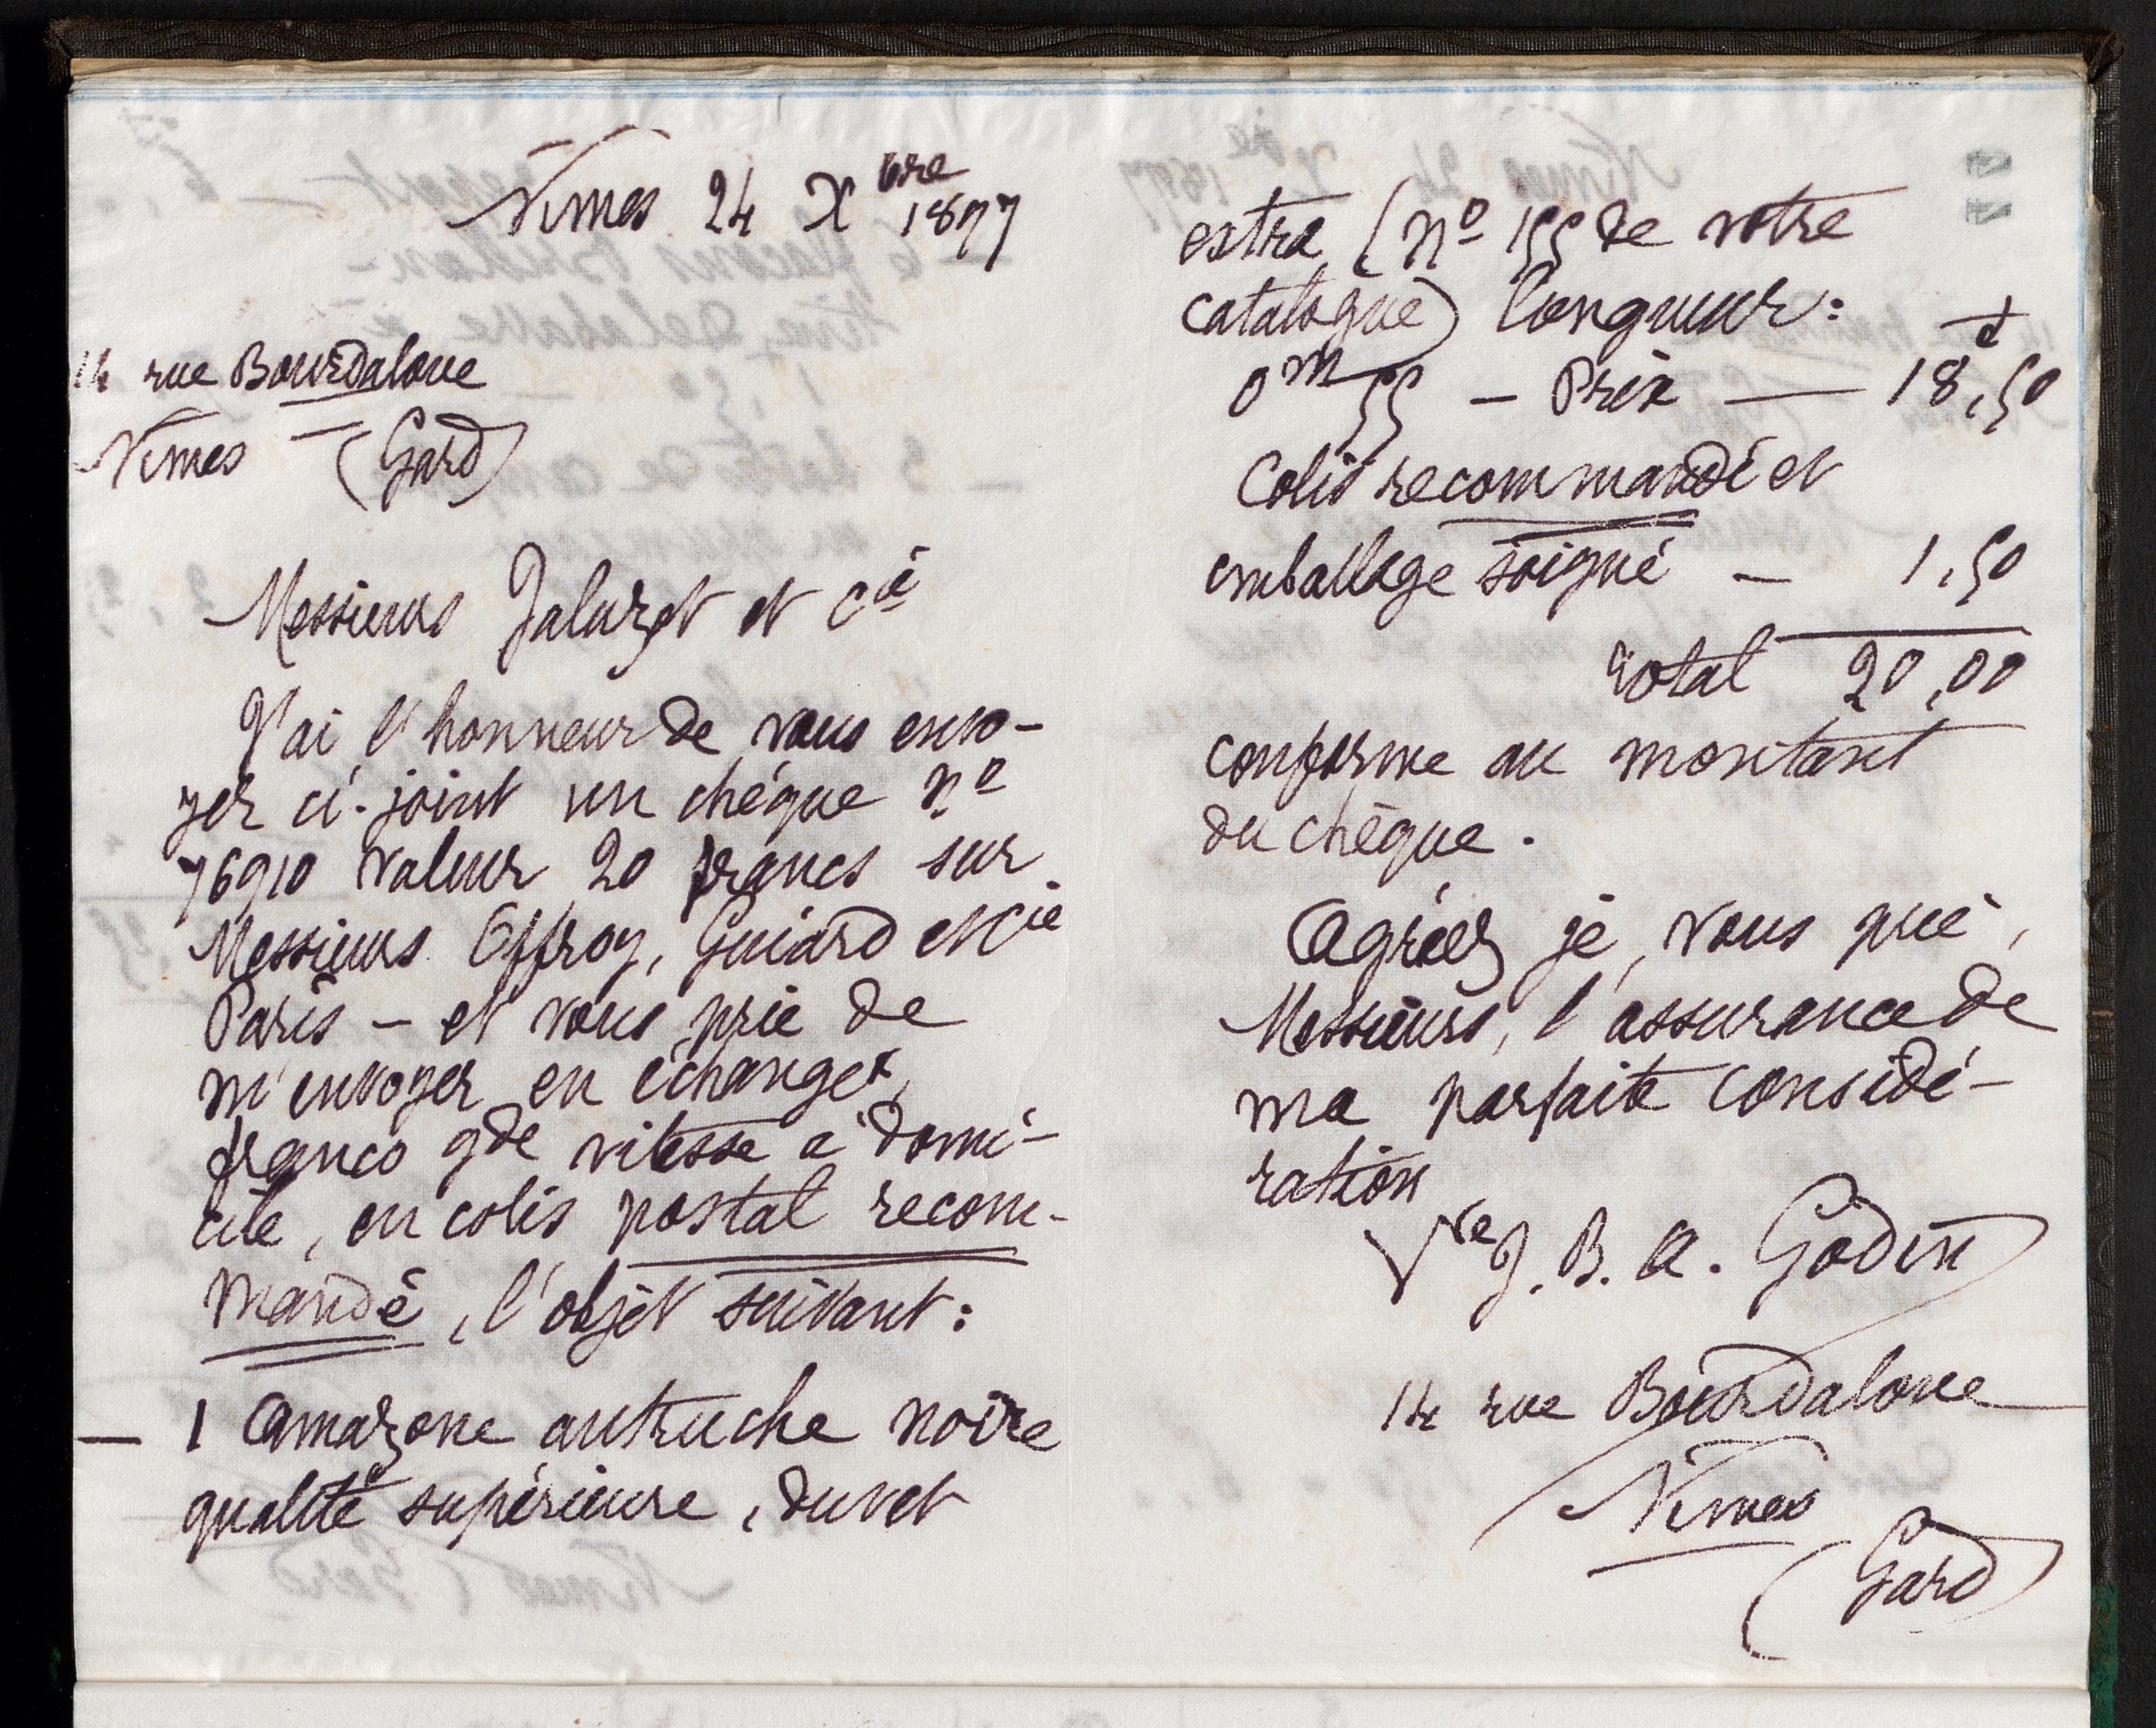 Nîmes 24 Xbre
1897
14 rue Bourdaloue
Nîmes (Gard)
Messieurs Jaluzot et Cie
J'ai l'honneur de vous envo-
yer ci-joint un chéque no
76910 valeur 20 francs sur
Messieurs Offroy, Guiard et Cie
Paris - et vous prie de
m'envoyer en échange,
franco gde vitesse à domi-
cile, en colis postal recom-
mandé, l'objet suivant:
— 1 amazone autruche noire
qualité supérieure, duvet
extra (no 155 de votre
catalogue) longueur:
0m 55 - Prix — 18,50
Colis recommandé et
emballage soigné - 1,50
total 20,00
conforme au montant
du chèque.
Agréez je vous prie,
Messieurs, l'assurance de
ma parfaite considé-
ration
Vve J. B. A. Godin
14 rue Bourdaloue
Nîmes
(Gard)